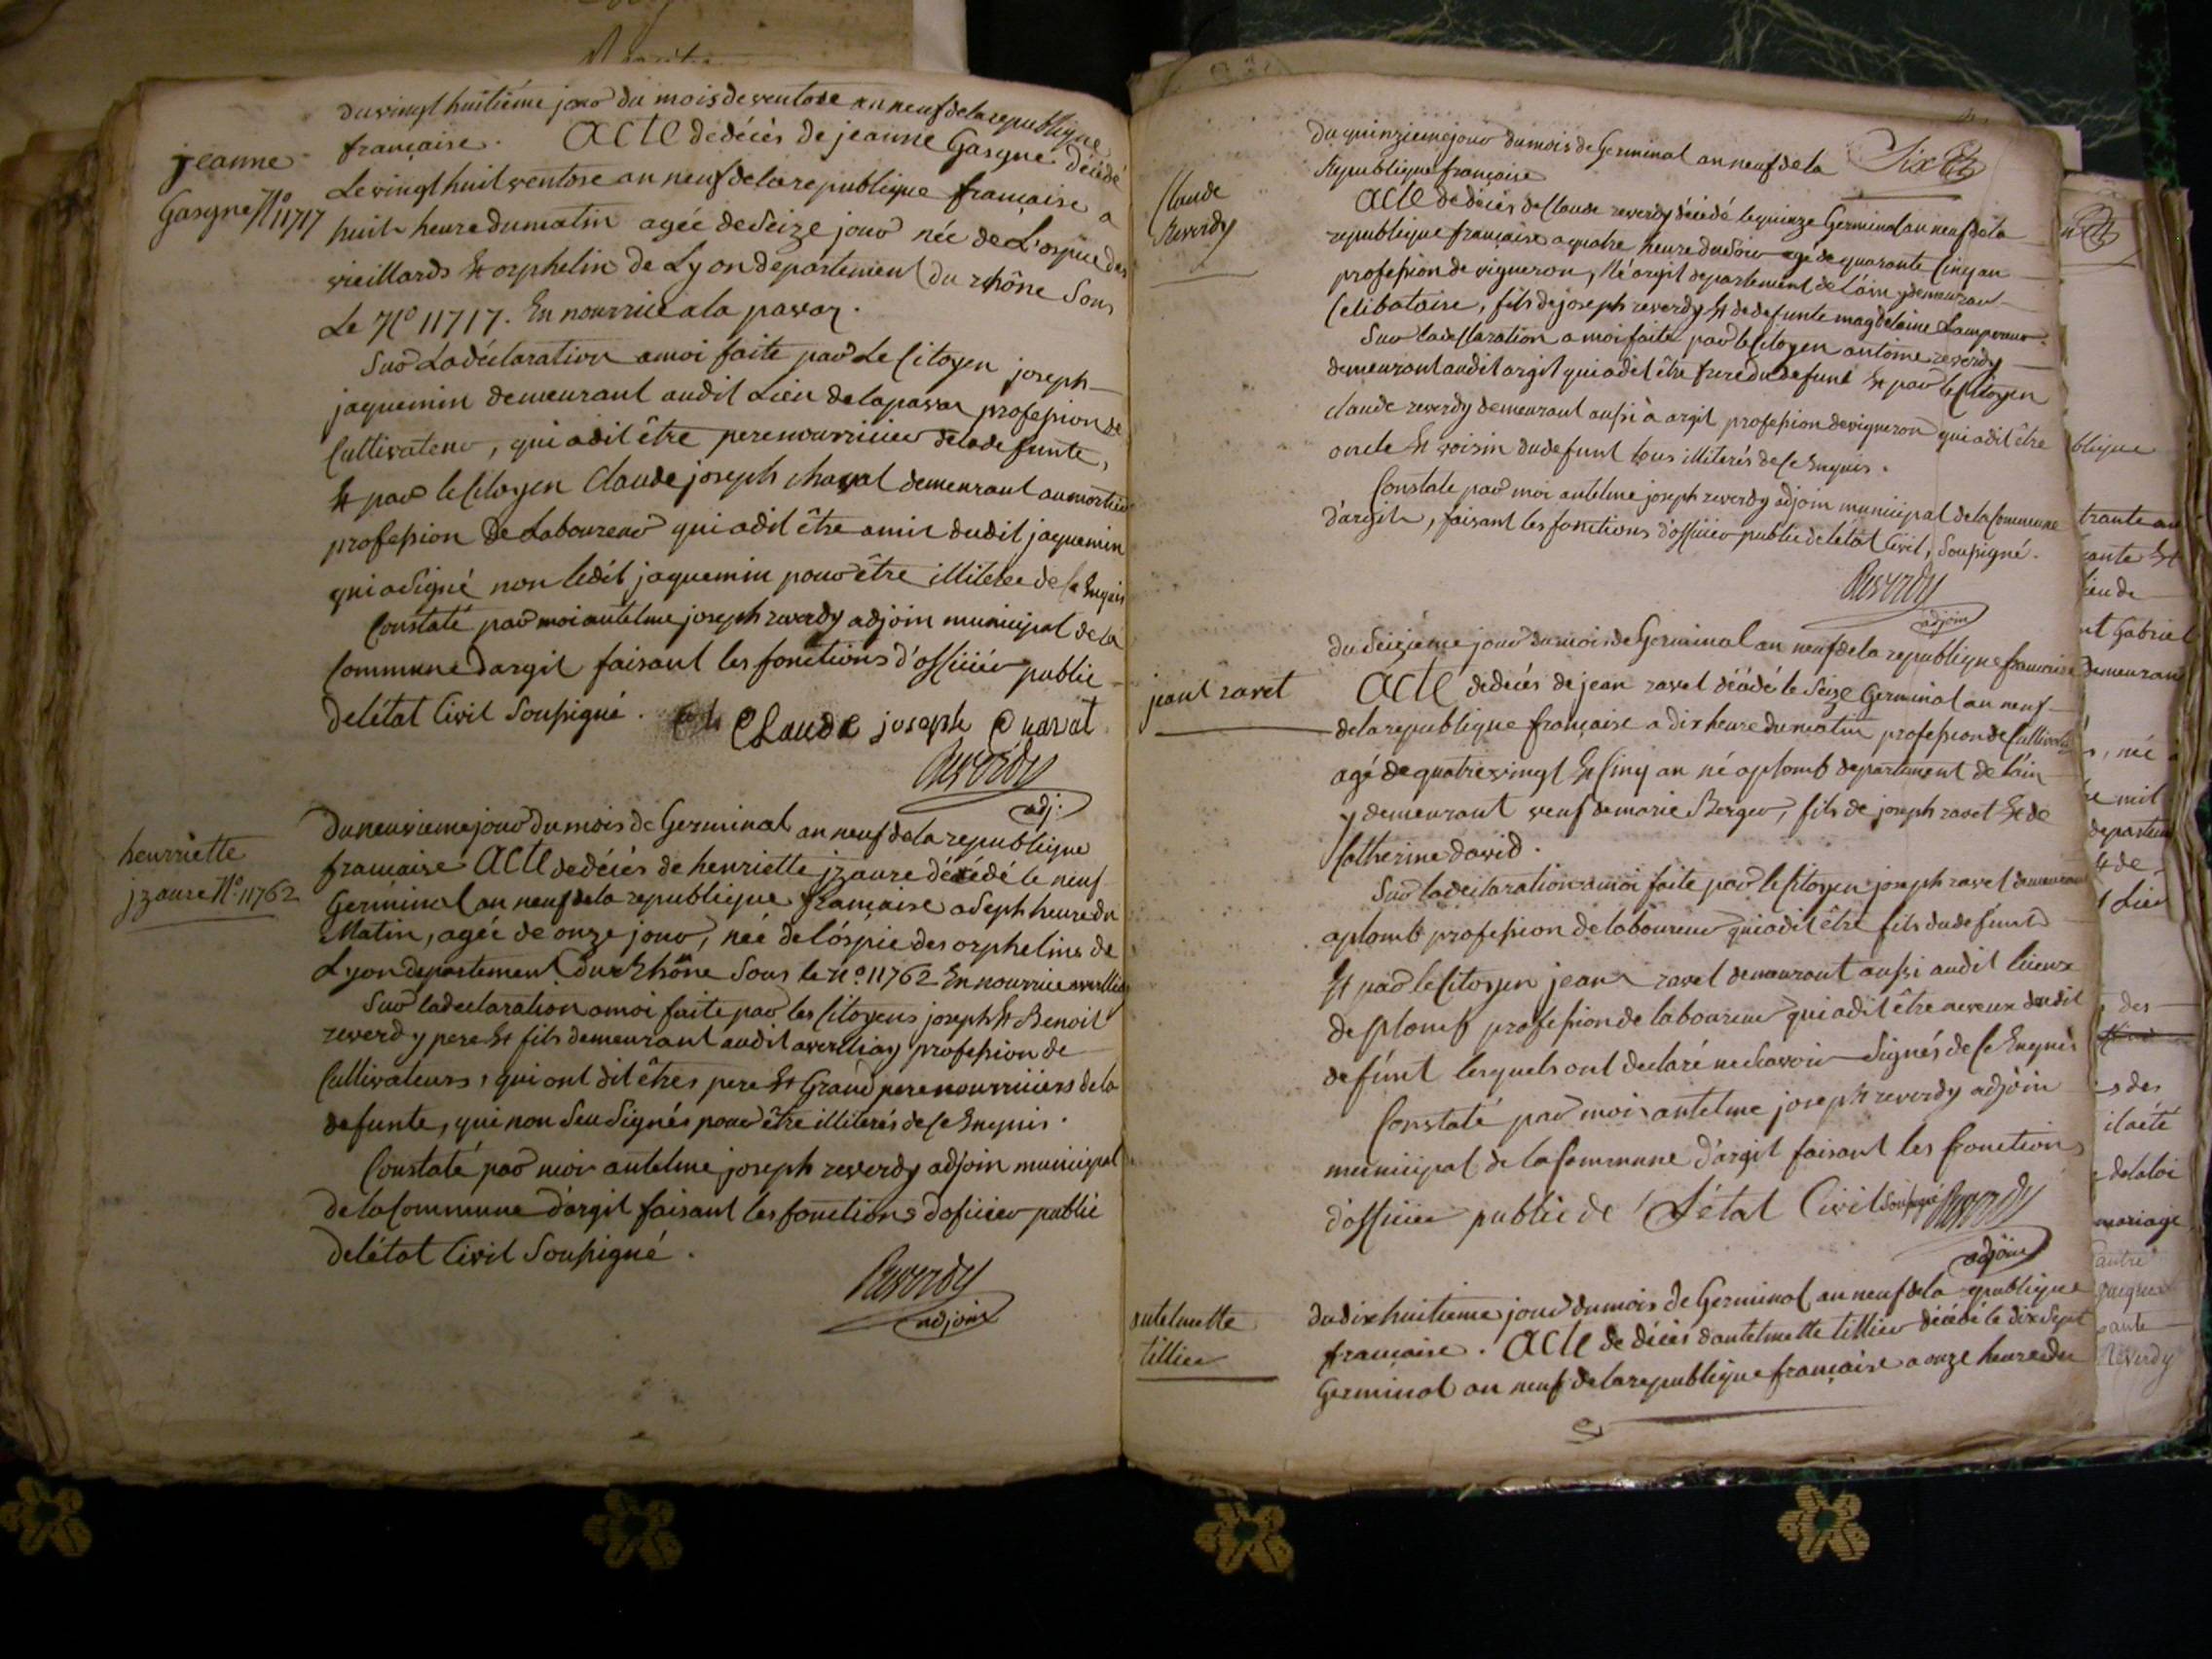 du vingt huitième jour du mois de ventose an neuf de la republique
française. Acte de décès de jeanne Gasgne décédé
jeanne
Gasgne N° 11717
Le vingt huit ventose an neuf de la republique française a
huit heure du matin agée de seize jour née de L'ospice des
vieillards Et orphelin de Lyon departement du rhône Sous
Le N° 11717. En nourrice a la pavaz.
Sur La déclaration a moi faite par Le Citoyen joseph
jaquemin demeurant audit Lieu de la pavaz profession de
Cultivateur, qui a dit être pere nourricier de la defunte,
Et par le Citoyen Claude joseph chavat demeurant au mortier
profession De Laboureur qui a dit être amis dudit jaquemin
qui a Signé non ledit jaquemin pour être illiteré de Ce Enquis
Constaté par moi antelme joseph reverdy adjoin municipal de la
Commune d'argit faisant les fonctions d'officier public
de létat Civil Soussigné. Claude joseph Chavat
Reverdy
adj:
henrriette
jzaure N°. 11762
Du neuvieme jour du mois de Germinal an neuf de la republique
française Acte de décès de henriette jzaure décédé le neuf
Germinal an neuf de la republique française a seph heure du
Matin, agée de onze jour, née de l'óspice des orphelins de
Lyon departement du Rhône Sous le N°. 11762 En nourrice
Sur la declaration a moi faite par les Citoyens joseph Et Benoit
reverdy pere Et fils demeurant audit averliay profession de
Cultivateurs, qui ont dit êtres pere Et Grand pere nourriciers de la
defunte, qui non Seu Signés pour être illiterés de Ce Enquis.
Constaté par moi antelme joseph reverdy adjoin municipal
de la Commune d'argit faisant les fonctions doficier public
de létat Civil Soussigné.
Reverdy
adjoin
Six
du quinzieme jour du mois de Germinal an neuf de la
Republique française
Claude
Reverdy
Acte de décès de Claude reverdy décédé le quinze Germinal an neuf de la
republique française a quatre heure du Soir agé de quarante Cinq an
profession de vigneron, Né argit departement de l'ain y demeurant
Celibataire, fils de joseph reverdy Et de defunte magdelaine
Sur la declaration a moi faite par le Citoyen antoine reverdy
demeurant audit argit qui a dit être frere du defunt Et par le Citoyen
claude reverdy demeurant aussi à argit profession de vigneron qui a dit être
oncle Et voisin du defunt tous illiterés de Ce Enquis.
Constaté par moi antelme joseph reverdy adjoin municipal de la Commune
d'argit, faisant les fonctions d'officier public de létat Civil, Soussigné.
Reverdy
adjoin
du Seizieme jour du mois de Germinal an neuf de la republique française
jean ravet
Acte de decés de jean ravet décédé le Seize Germinal an neuf
de la republique française a dix heure du matin profession de Cultivateur
agé de quatre vingt Et Cinq an né a plomb departement de láin
y demeurant veuf de marie Berger, fils de joseph ravet Et de
Catherine david.
Sur la declaration a moi faite par le Citoyen joseph ravet demeurant
a plomb profession de laboureur qui a dit être fils du defunt
Et par le Citoyen jean ravet demeurant aussi audit lieux
de plomb profession de laboureur qui a dit être neveux dudit
defúnt lesquels ont declaré ne Savoir Signés de Ce Enquis
Constaté par moi antelme joseph reverdy adjoin
municipal de la Commune d'argit faisant les fonction
d'officier public de L'état Civil Soussigné Reverdy
adjoin
antelmette
tillier
du dix huitieme jour du mois de Germinal an neuf de la republique
française. Acte de décès dantelmette tillier décédé le dix Sept
Germinal an neuf de la republique française a onze heure du
blique
trante an
Et
nt Gabriel
demeurant
, né
mil
departem
Et de
Lieu
des
s des
de la loi
mariage
autre
Reverdy